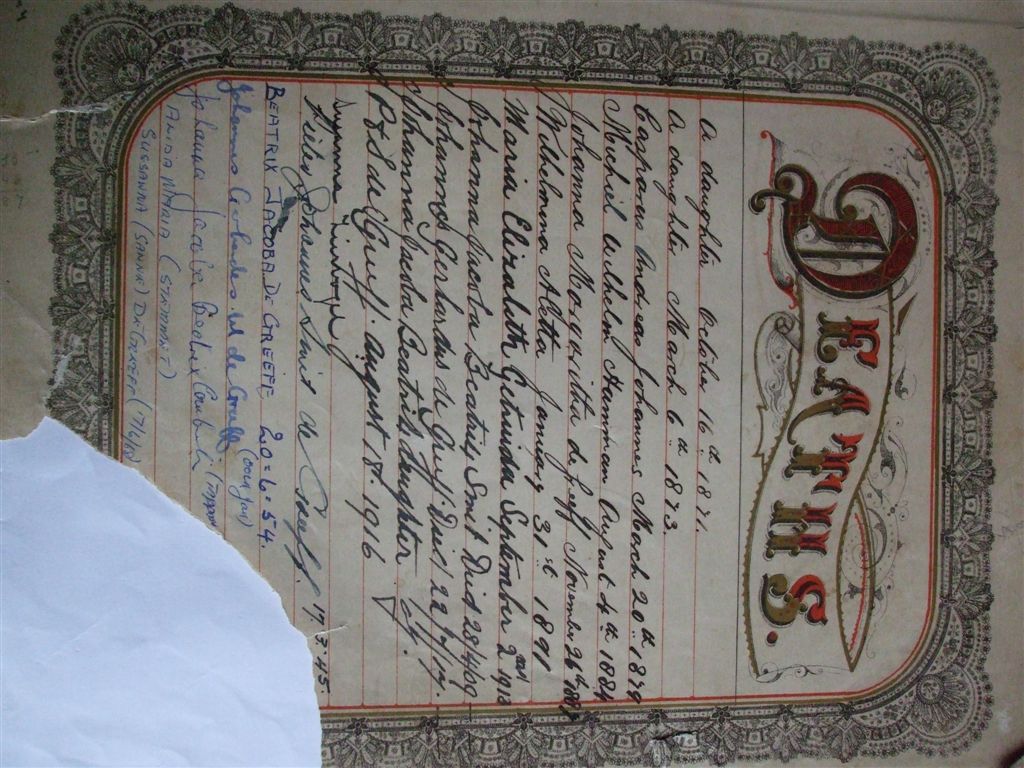 DEATHS.
A daughter October 16th 1871.
A daughter March 6th 1873.
Casparus Andreas Johannes March 20th 1879
Michiel Wilhelm Hamman August 4th 1884
Johanna Margaritha de Greeff November 26th
Wilhelmina Aletta January 31st 1891
Maria Elizabeth Gertruida September 2nd 1913
Johanna Jacoba Beatrix Smit Died 28/4/09
Johannes Gerhardus de Greeff Died 22/
Johanna Jacoba Beatrix daughter of
P & S de Greeff. August 8. 1916
Dieley Johannes Smit de Greeff. 45.
BEATRIX JACOBA DE GREEFF 20-6-54.
Johannes Gerhardus de Greeff (Oom Jan)
Johanna
ANIDA MARIA
SUSSANNA (SANNA) DE GREEFF (17/6/